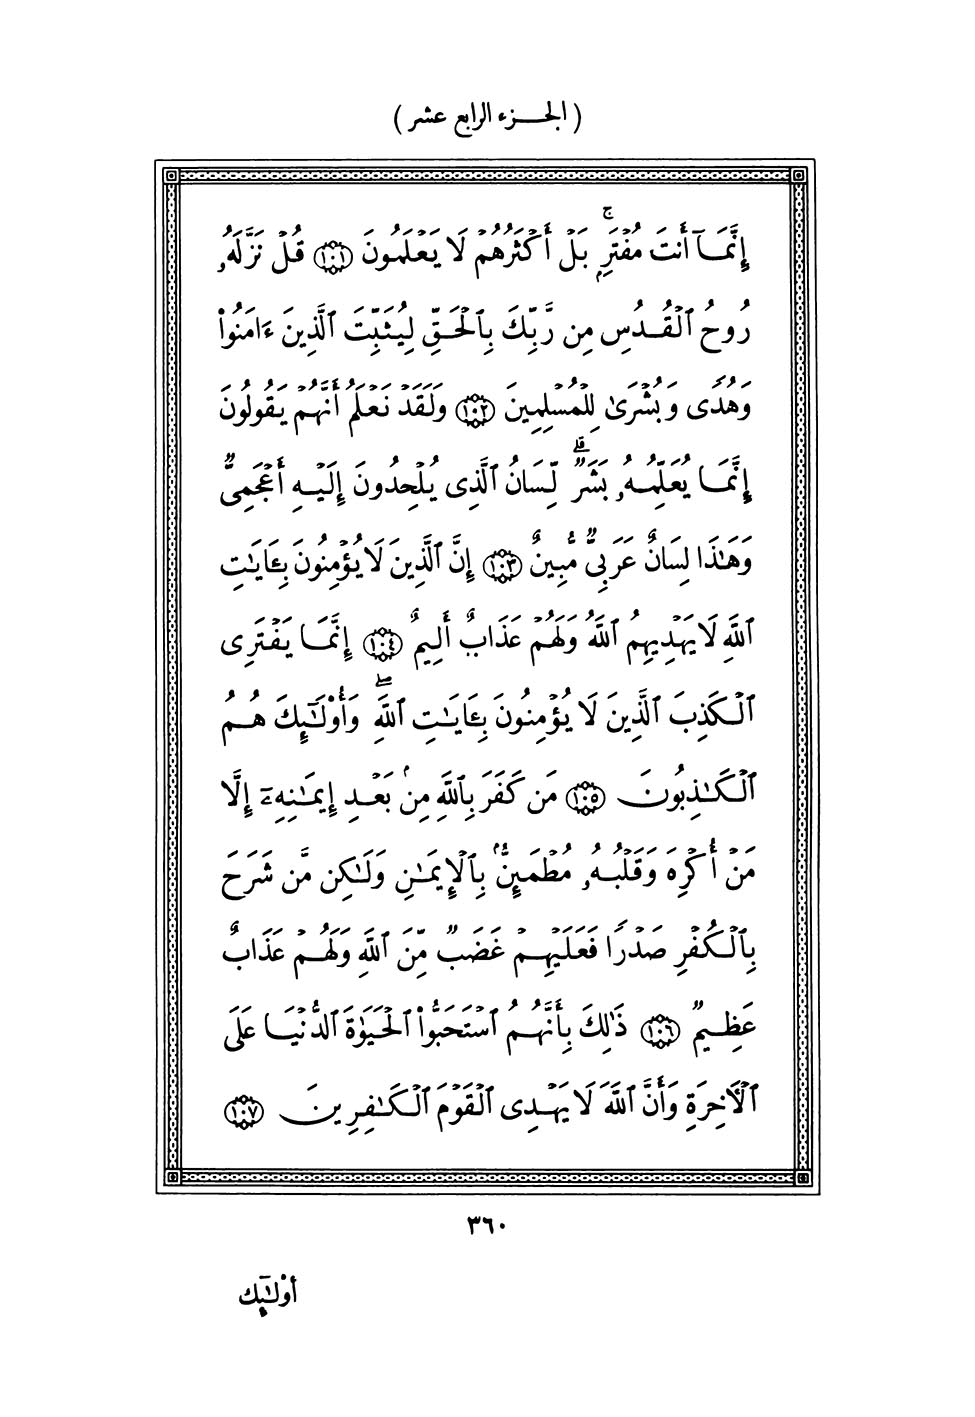 ( الجزء الرابع عشر )
إِنَّمَآ أَنتَ مُفْتَرِۭ ۚ بَلْ أَكْثَرُهُمْ لَا يَعْلَمُونَ ١٠١ قُلْ نَزَّلَهُۥ
رُوحُ ٱلْقُدُسِ مِن رَّبِّكَ بِٱلْحَقِّ لِيُثَبِّتَ ٱلَّذِينَ ءَامَنُوا۟
وَهُدًى وَبُشْرَىٰ لِلْمُسْلِمِينَ ١٠٢ وَلَقَدْ نَعْلَمُ أَنَّهُمْ يَقُولُونَ
إِنَّمَا يُعَلِّمُهُۥ بَشَرٌ ۗ لِّسَانُ ٱلَّذِى يُلْحِدُونَ إِلَيْهِ أَعْجَمِىٌّ
وَهَٰذَا لِسَانٌ عَرَبِىٌّ مُّبِينٌ ١٠٣ إِنَّ ٱلَّذِينَ لَا يُؤْمِنُونَ بِـَٔايَٰتِ
ٱللَّهِ لَا يَهْدِيهِمُ ٱللَّهُ وَلَهُمْ عَذَابٌ أَلِيمٌ ١٠٤ إِنَّمَا يَفْتَرِى
ٱلْكَذِبَ ٱلَّذِينَ لَا يُؤْمِنُونَ بِـَٔايَٰتِ ٱللَّهِ ۖ وَأُو۟لَٰٓئِكَ هُمُ
ٱلْكَٰذِبُونَ ١٠٥ مَن كَفَرَ بِٱللَّهِ مِنۢ بَعْدِ إِيمَٰنِهِۦٓ إِلَّا
مَنْ أُكْرِهَ وَقَلْبُهُۥ مُطْمَئِنٌّۢ بِٱلْإِيمَٰنِ وَلَٰكِن مَّن شَرَحَ
بِٱلْكُفْرِ صَدْرًا فَعَلَيْهِمْ غَضَبٌ مِّنَ ٱللَّهِ وَلَهُمْ عَذَابٌ
عَظِيمٌ ١٠٦ ذَٰلِكَ بِأَنَّهُمُ ٱسْتَحَبُّوا۟ ٱلْحَيَوٰةَ ٱلدُّنْيَا عَلَى
ٱلْـَٔاخِرَةِ وَأَنَّ ٱللَّهَ لَا يَهْدِى ٱلْقَوْمَ ٱلْكَٰفِرِينَ ١٠٧
٣٦٠
أو۟لَٰٓئك